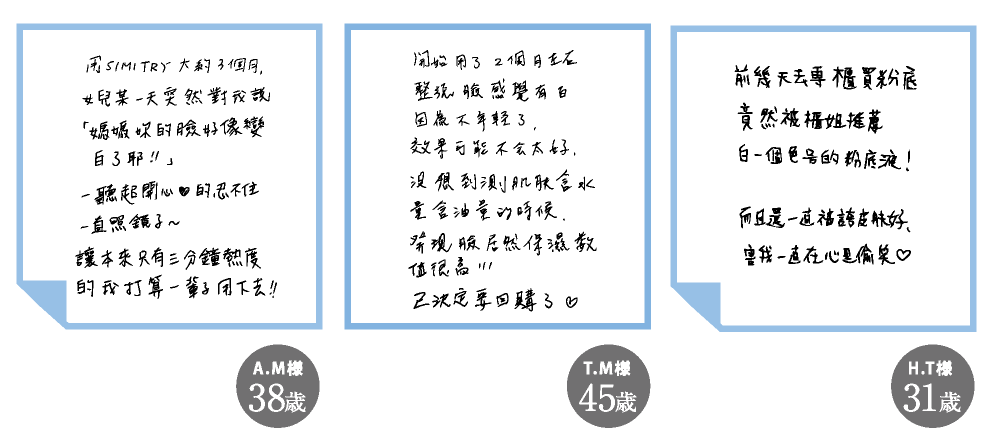 用SIMITRY大約3個月,
女兒某一天突然對我說
「媽媽妳的臉好像變
白了耶!!」
一聽起開心♥的忍不住
一直照鏡子~
讓本來只有三分鐘熱度
的我打算一輩子用下去!!
A.M様
38歳
開始用了2個月左右
整張臉感覺有白
因為不年輕了,
效果可能不會太好.
沒想到測肌肤含水
量含油量的時候.
發現臉居然保濕數
值很高!!!
己決定要回購了♡
T.M様
45歳
前幾天去專櫃買粉底
竟然被櫃姐推薦
白一個色号的粉底液!
而且還一直被誇皮肤好,
害我一直在心里偷笑♡
H.T様
31歳